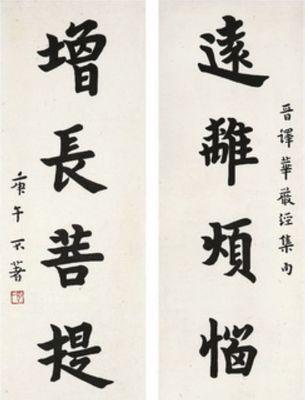 晉譯華嚴經集句
遠離煩惱
增長菩提
庚午不著